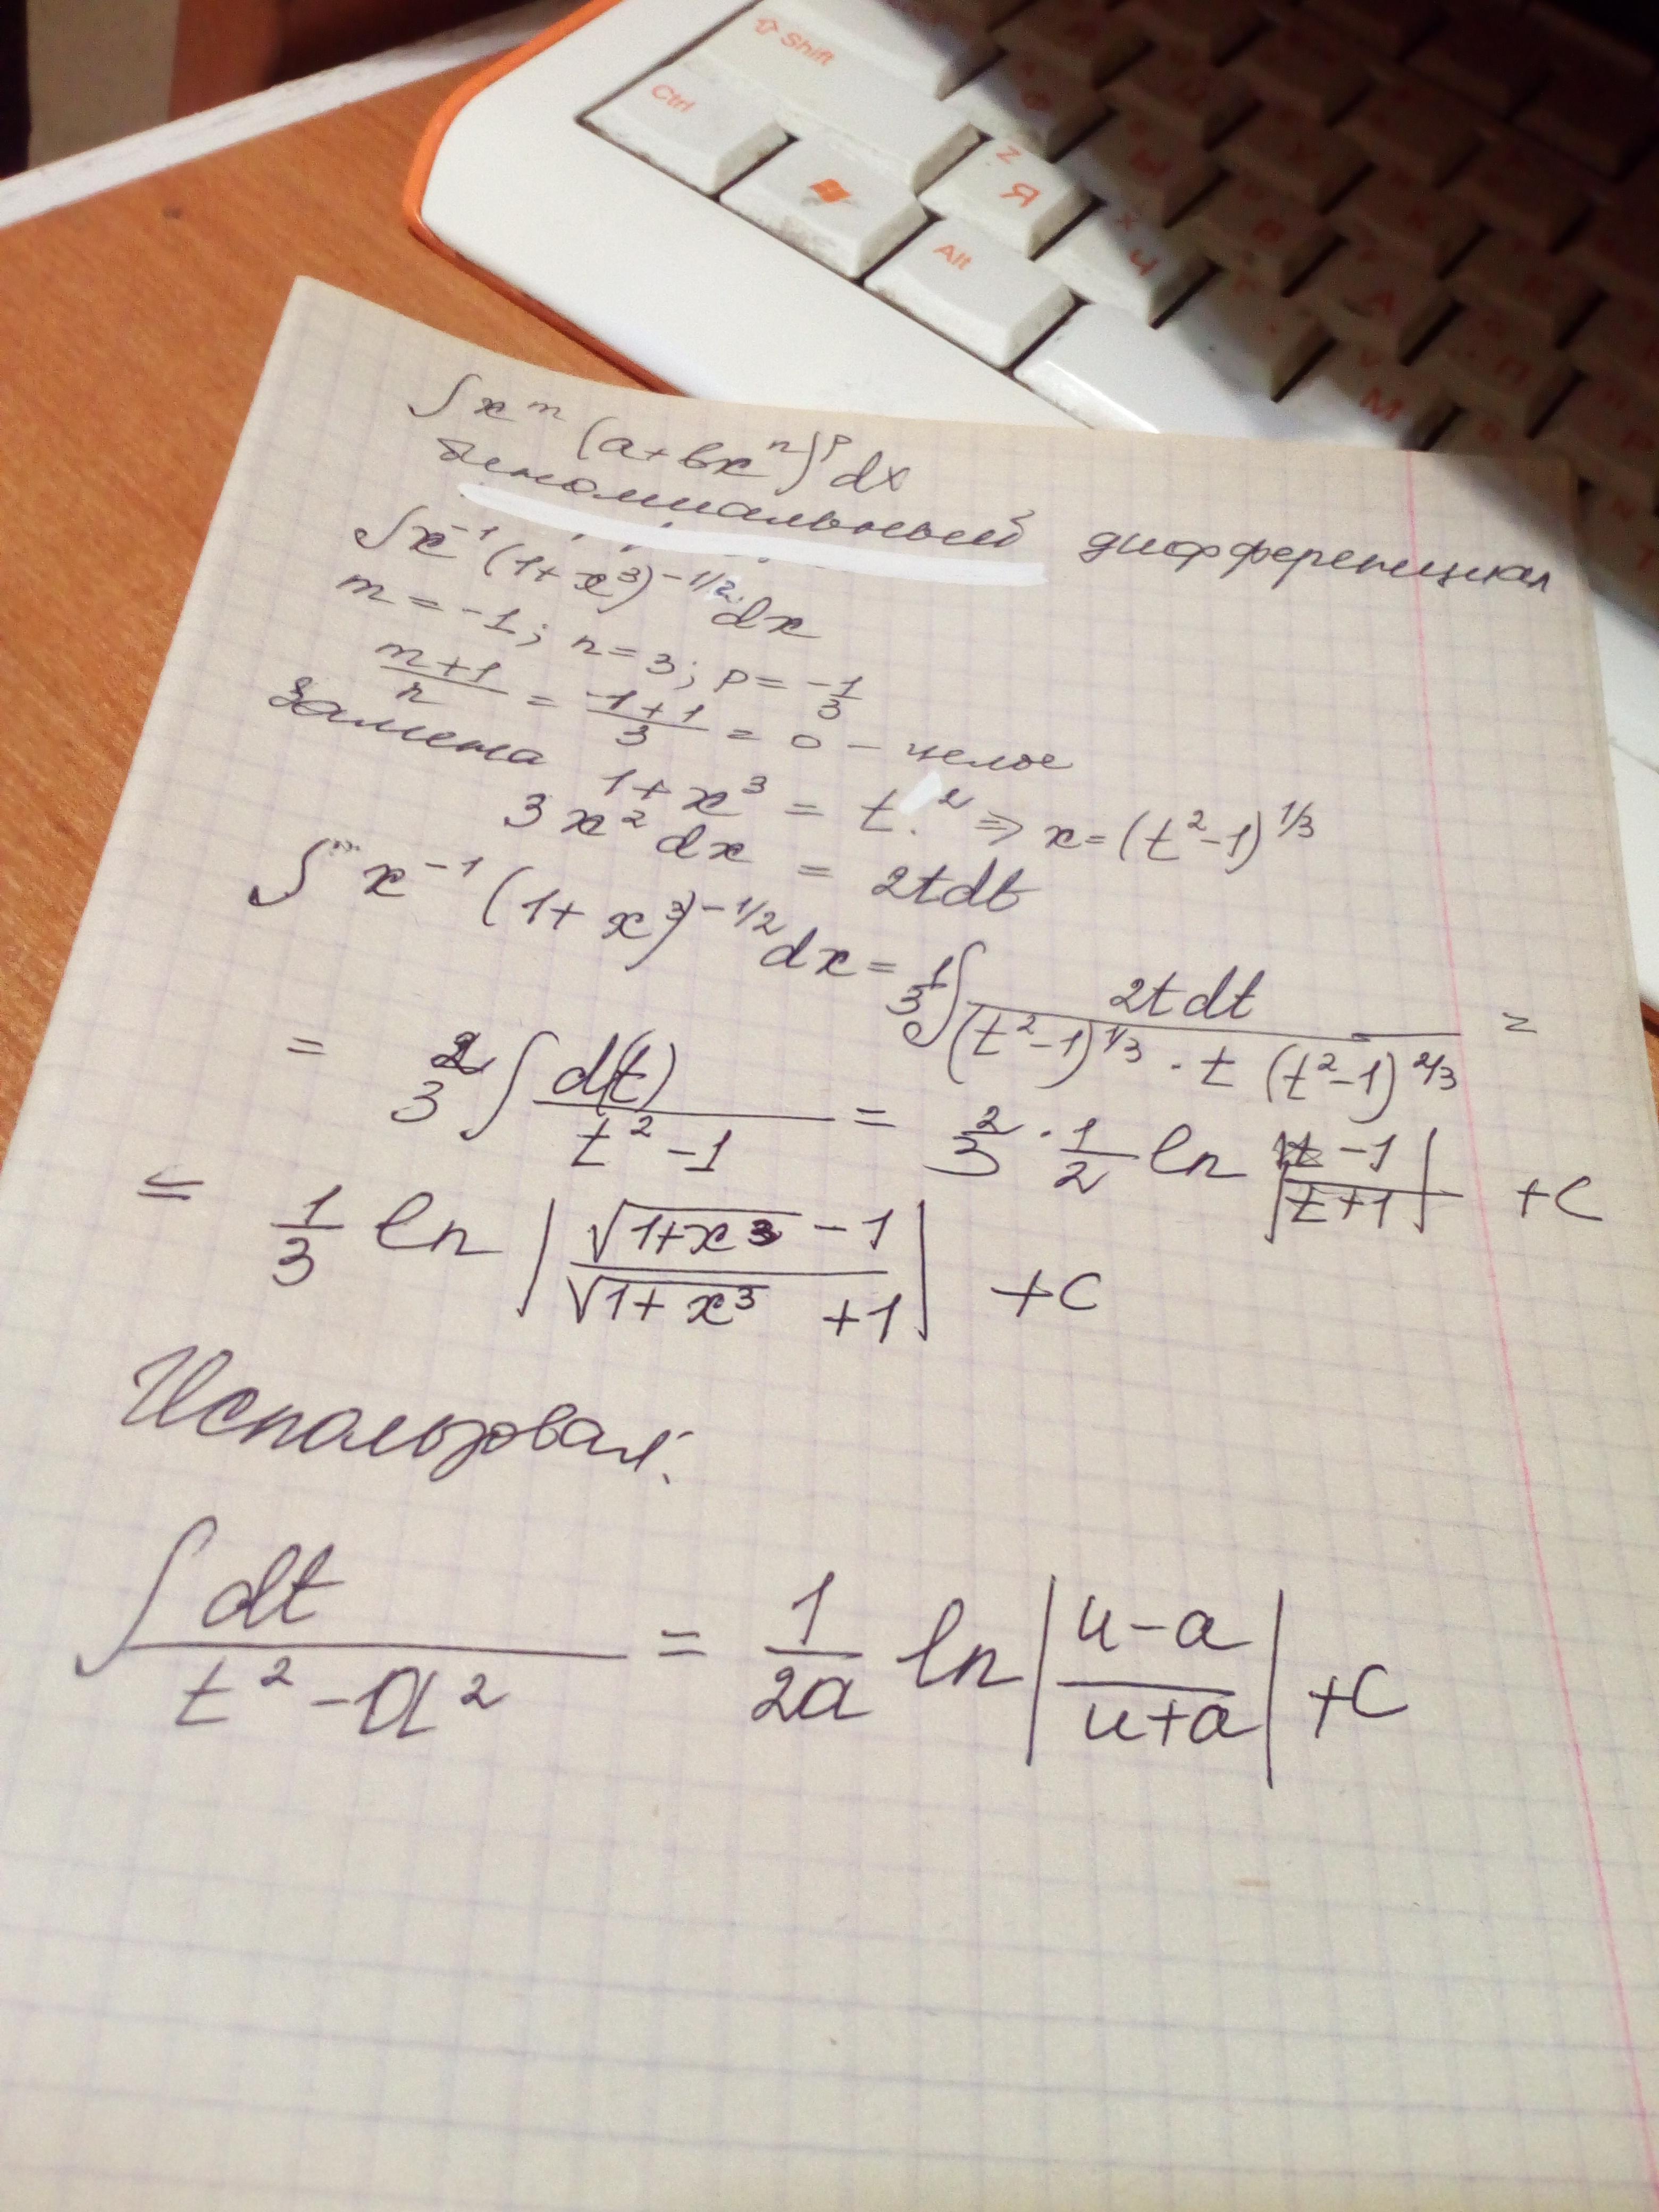 ⇧ Shift
Ctrl
Z
Я
Alt
Ч
М
∫ x^m (a+bx^n)^p dx
биномиальный дифференциал
∫ x^-1 (1+x^3)^-1/2 dx
m = -1; n = 3; p = -1/3
(m+1)/n = (-1+1)/3 = 0 - целое
Замена 1+x^3 = t^2 ⇒ x = (t^2-1)^1/3
3x^2 dx = 2tdt
∫ x^-1 (1+x^3)^-1/2 dx = 1/3 ∫ 2tdt / ((t^2-1)^1/3 · t (t^2-1)^2/3) =
= 2/3 ∫ d(t)/(t^2-1) = 2/3 · 1/2 ln |(t-1)/(t+1)| + C
= 1/3 ln |(√(1+x^3) - 1)/(√(1+x^3) + 1)| + C
Использовал:
∫ dt/(t^2-a^2) = 1/2a ln |(u-a)/(u+a)| + C